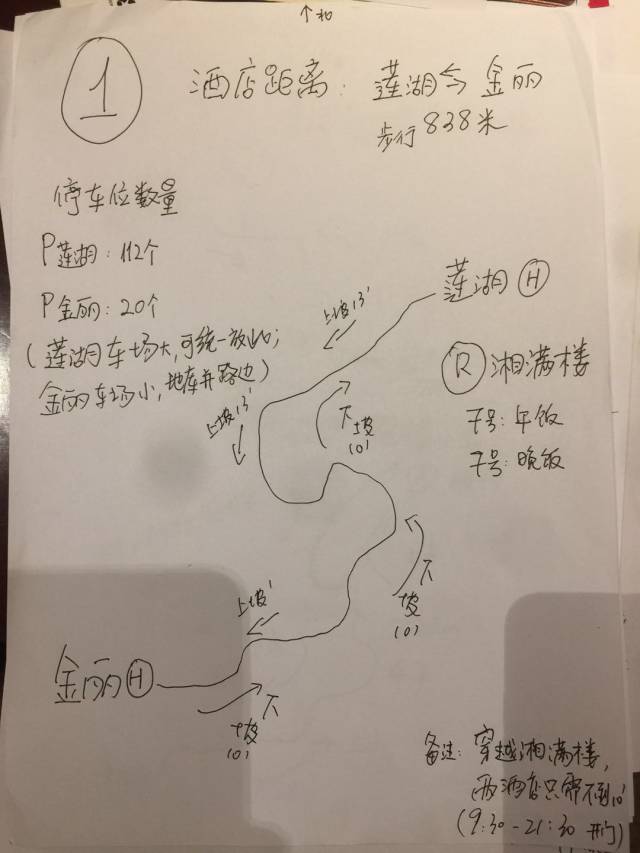 ↑北
1
酒店距离: 莲湖⇆金丽
步行838米
停车位数量
P莲湖: 112个
P金丽: 20个
(莲湖车场大,可统一放此;
金丽车场小,地库并路边)
莲湖 H
R 湘满楼
7号: 午饭
7号: 晚饭
上坡13'
下坡10'
上坡13'
下坡10'
上坡'
金丽 H
下坡10'
备注: 穿越湘满楼,
两酒店只需不到10'
(9:30-21:30 开门)